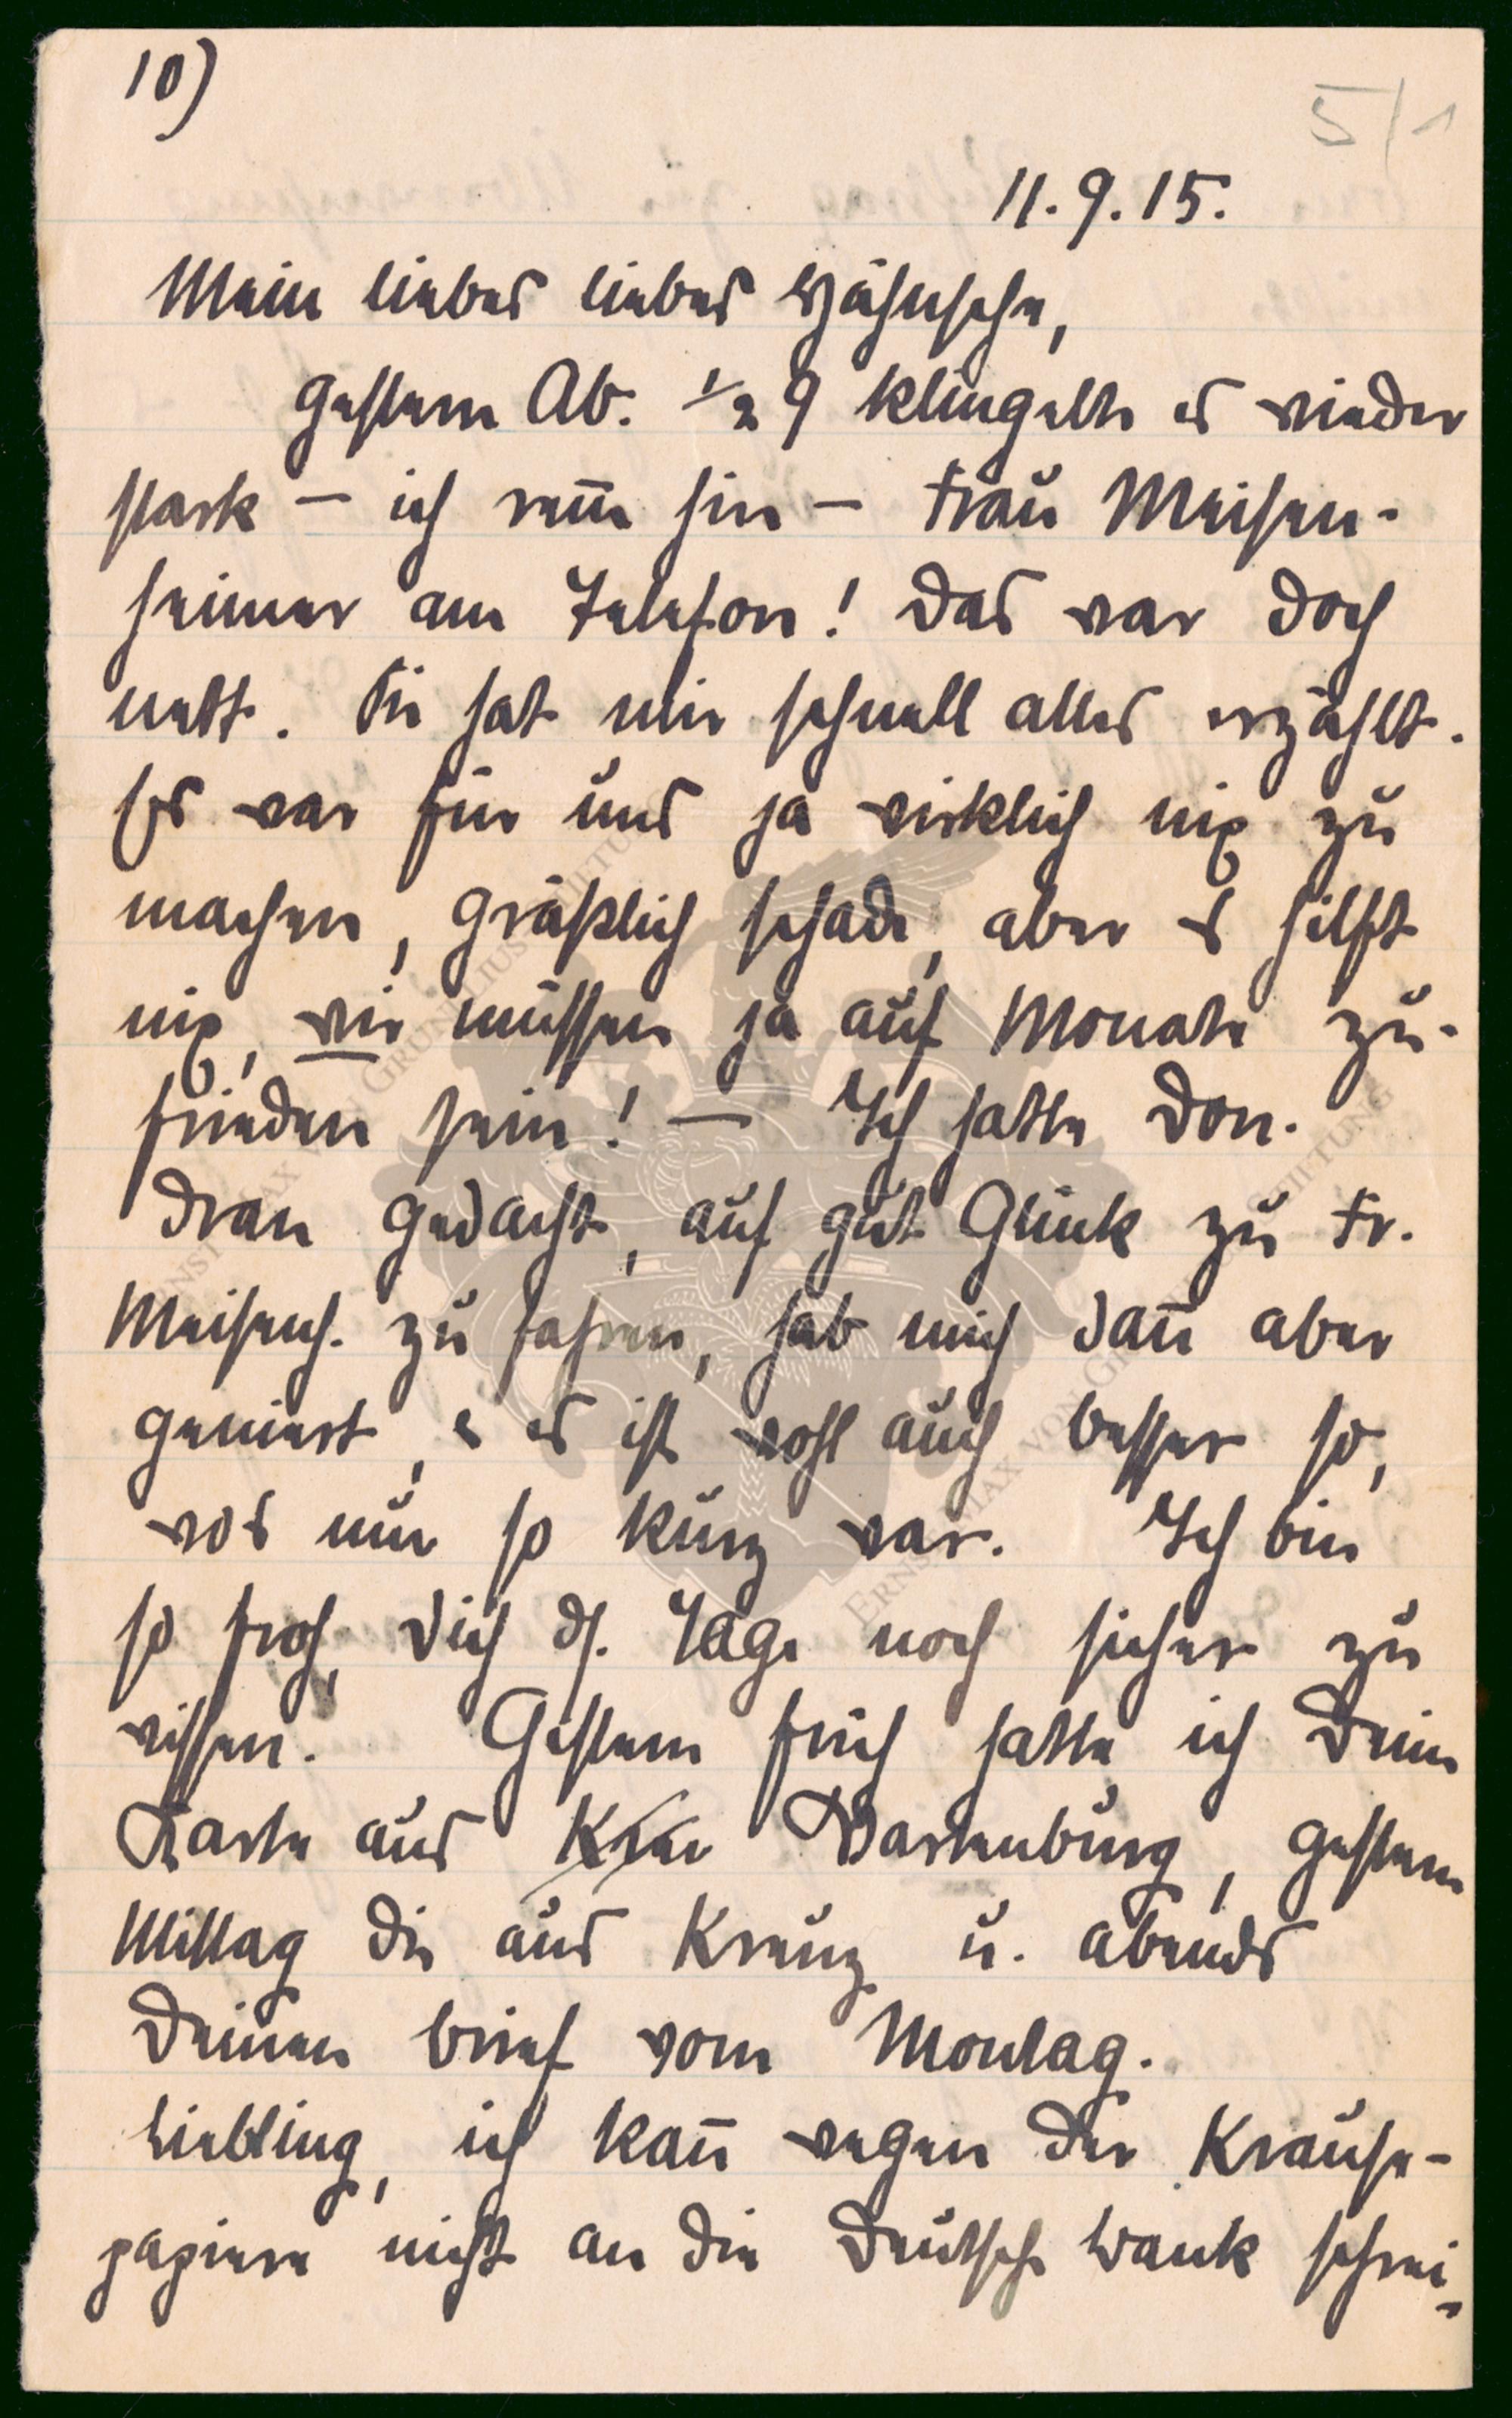 10)
5/1
11.9.15.
Mein liebes liebes Hähnsche,
gestern Ab. 1/2 9 klingelte es wieder
stark – ich renn hin – Frau Meisen-
heimer am Telefon! Das war doch
nett. Sie hat mir schnell alles erzählt.
Es war für uns ja wirklich nix zu
machen, gräßlich schade, aber s hilft
nix, wir müssen ja auf Monate zu-
frieden sein! – Ich hatte Don.
dran gedacht, auf gut Glück zu Fr.
Meisenh. zu fahren, hab mich dan̄ aber
geniert, & es ist wohl auch besser so,
wos nur so kurz war. Ich bin
so froh, Dich ds. Tage noch sicher zu
wissen. Gestern früh hatte ich Deine
Karte aus Kreu Wartenburg, gestern
Mittag die aus Kreuz u. abends
Deinen Brief vom Montag.
Liebling, ich kan̄ wegen der Krause-
papiere nicht an die Deutsche Bank schrei-
ERNST MAX VON GRUNELIUS STIFTUNG
ERNST MAX VON GRUNELIUS STIFTUNG